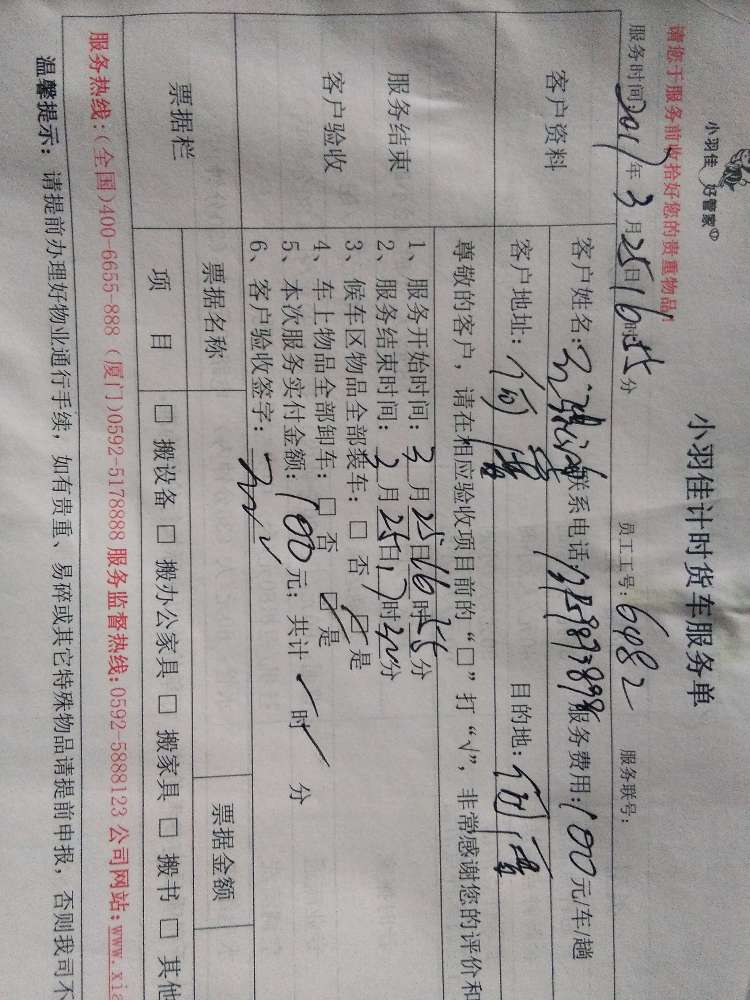 小羽佳 好管家
小羽佳计时货车服务单
请您于服务前收拾好您的贵重物品!
员工工号: 6482 服务联号:
服务时间: 2017年3月25日16时55分
客户资料
客户姓名: 联系电话: 服务费用: 100元/车/趟
客户地址: 目的地:
尊敬的客户, 请在相应验收项目前的“□”打“√”, 非常感谢您的评价和
服务结束
客户验收
1、服务开始时间: 3月25日16时55分
2、服务结束时间: 3月25日17时20分
3、候车区物品全部装车: □ 否 ☑ 是
4、车上物品全部卸车: □ 否 ☑ 是
5、本次服务实付金额: 100元; 共计 时 分
6、客户验收签字:
票据栏
票据名称 票据金额
项 目 □ 搬设备 □ 搬办公家具 □ 搬家具 □ 搬书 □ 其他
服务热线: (全国)400-6655-888 (厦门)0592-5178888 服务监督热线: 0592-5888123 公司网站: www.xia
温馨提示: 请提前办理好物业通行手续, 如有贵重、易碎或其它特殊物品请提前申报, 否则我司不